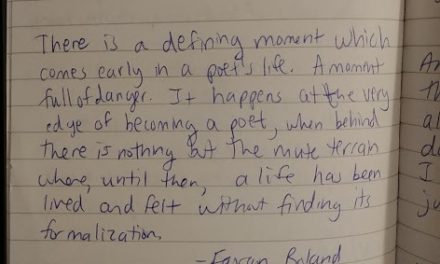 There is a defining moment which
comes early in a poet's life. A moment
full of danger. It happens at the very
edge of becoming a poet, when behind
there is nothing but the mute terrain
where, until then, a life has been
lived and felt without finding its
formalization.
- Eavan Boland
A
th
al
d
I
ju